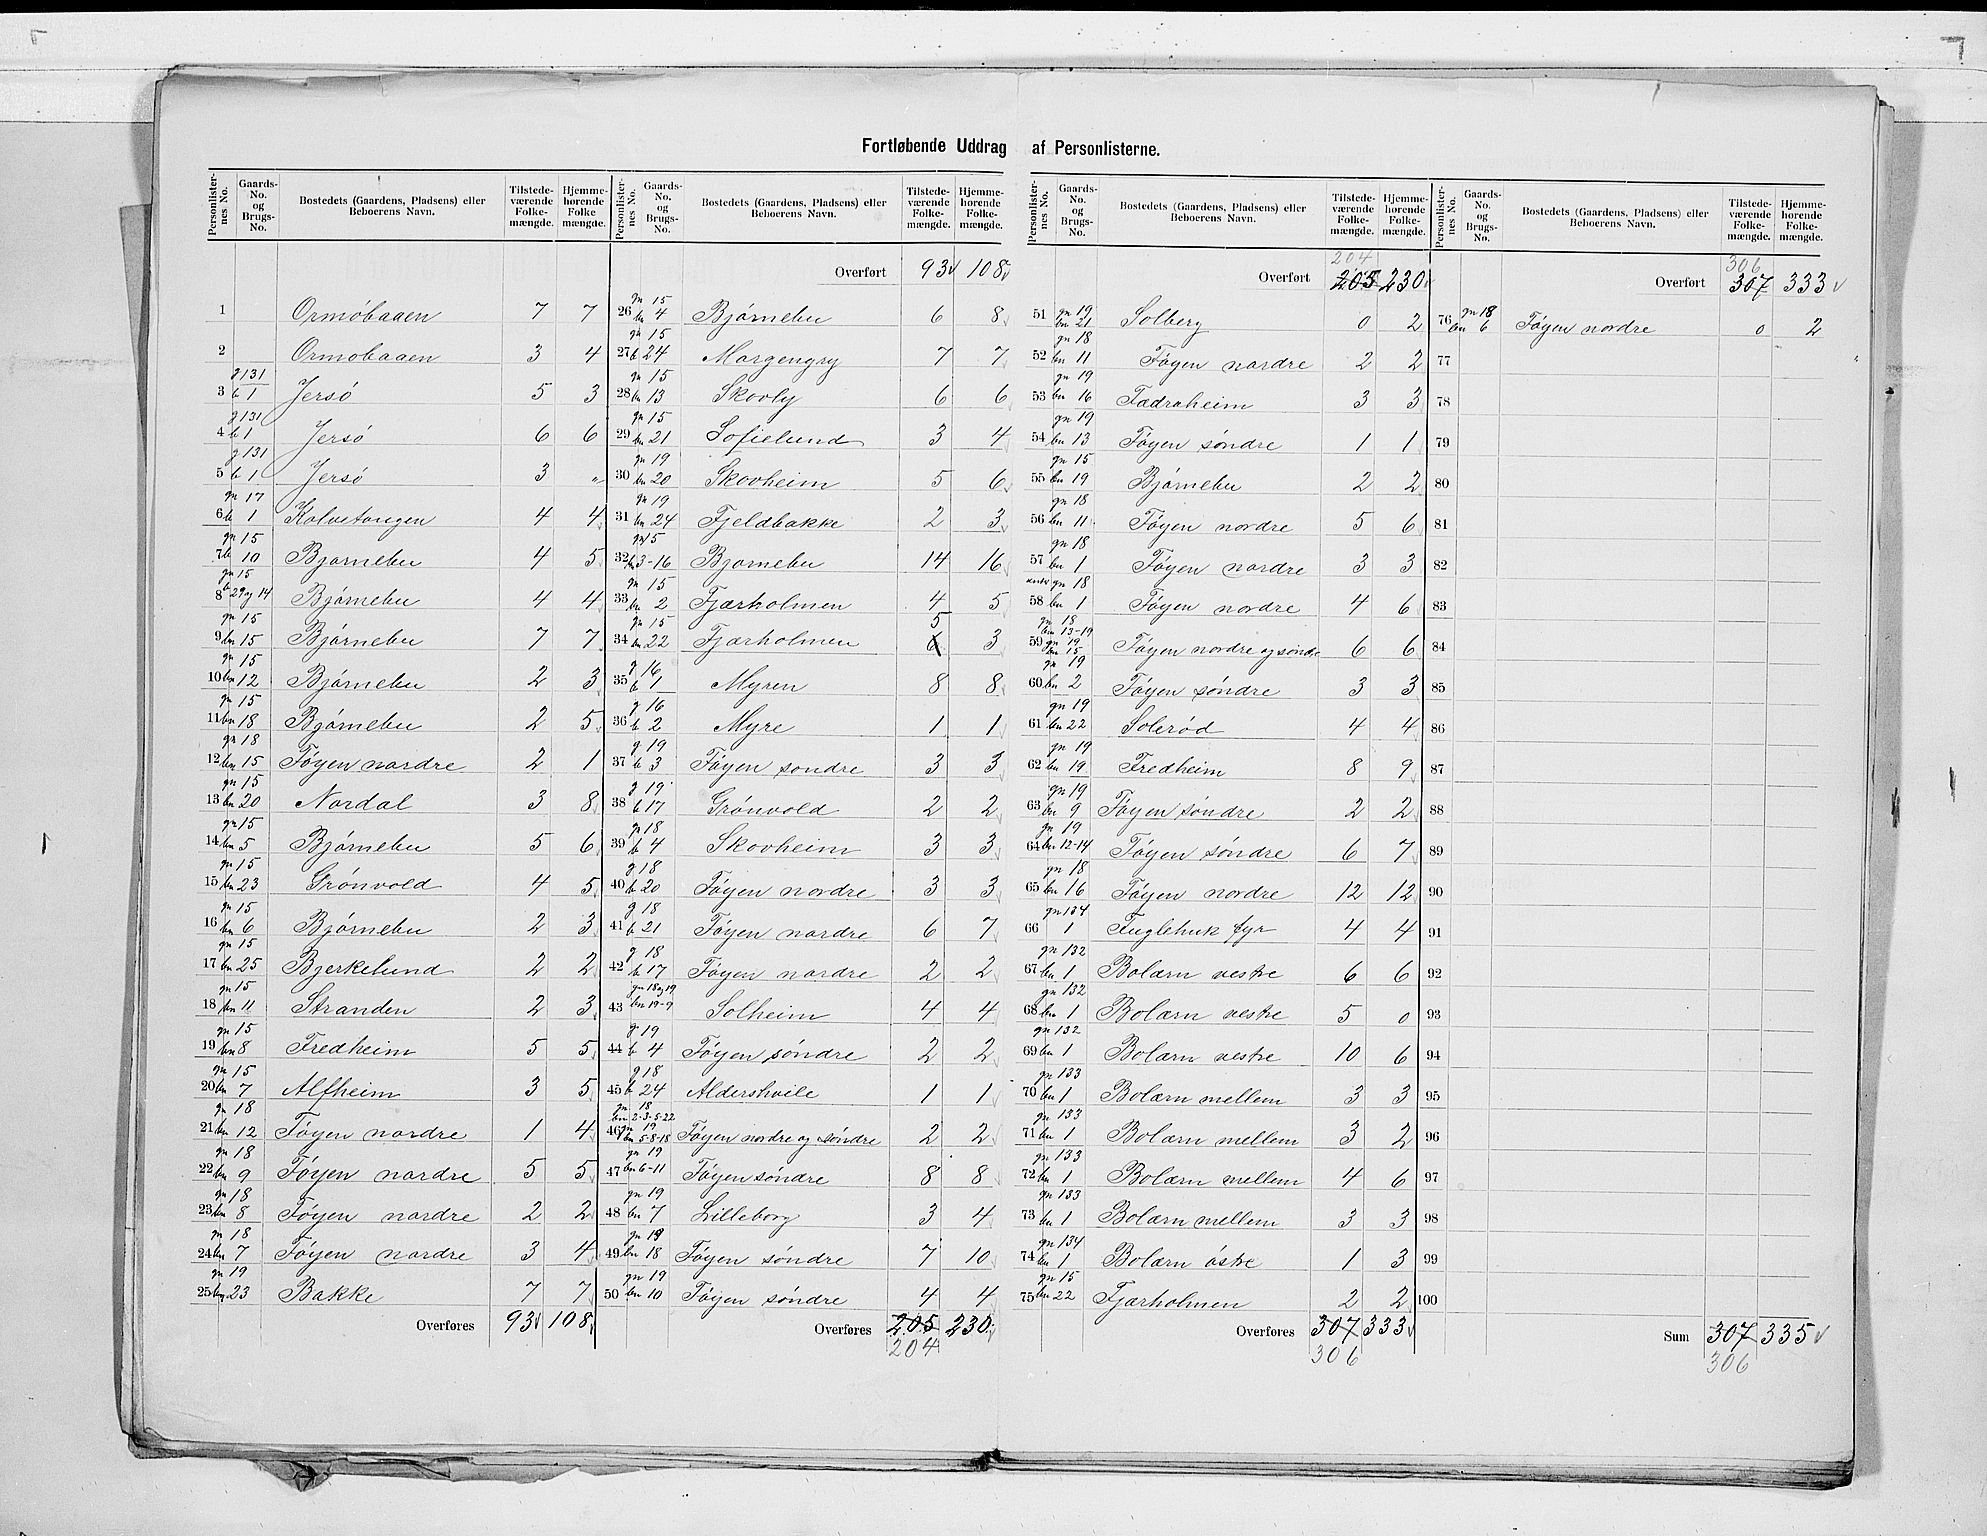 Fortløbende Uddrag af Personlisterne.
Personlister-nes No. | Gaards-No. og Brugs-No. | Bostedets (Gaardens, Pladsens) eller Beboerens Navn. | Tilstede-værende Folke-mængde. | Hjemme-hørende Folke mængde.
1 Ormøbaaen 7 7
2 Ormøbaaen 3 4
3 g 131 b 1 Jersø 5 3
4 g 131 b 1 Jersø 6 6
5 g 131 b 1 Jersø 3 "
6 gn 17 b 1 Kalvetangen 4 4
7 gn 15 b 10 Bjørnebu 4 5
8 gn 15 b 29 og 14 Bjørnebu 4 4
9 gn 15 bn 15 Bjørnebu 7 7
10 gn 15 bn 12 Bjørnebu 2 3
11 gn 15 bn 18 Bjørnebu 2 5
12 gn 18 bn 15 Føyen nordre 2 1
13 gn 15 bn 20 Nordal 3 8
14 gn 15 bn 5 Bjørnebu 5 6
15 gn 15 bn 23 Grønvold 4 5
16 gn 15 bn 6 Bjørnebu 2 3
17 gn 15 bn 25 Bjerkelund 2 2
18 gn 15 bn 11 Stranden 2 3
19 gn 15 bn 8 Fredheim 5 5
20 gn 15 bn 7 Alfheim 3 5
21 gn 18 bn 12 Føyen nordre 1 4
22 gn 18 bn 9 Føyen nordre 5 5
23 gn 18 bn 8 Føyen nordre 2 2
24 gn 18 bn 7 Føyen nordre 3 4
25 gn 19 bn 23 Bakke 7 7
Overføres 93 108
Personlister-nes No. | Gaards-No. og Brugs-No. | Bostedets (Gaardens, Pladsens) eller Beboerens Navn. | Tilstede-værende Folke-mængde. | Hjemme-hørende Folke-mængde.
Overført 93 108
26 gn 15 bn 4 Bjørnebu 6 8
27 gn 15 b 24 Morgengry 7 7
28 gn 15 bn 13 Skovly 6 6
29 gn 15 bn 21 Sofielund 3 4
30 gn 19 bn 20 Skovheim 5 6
31 gn 19 bn 24 Fjeldbakke 2 3
32 gn 15 bn 3-16 Bjørnebu 14 16
33 gn 15 bn 2 Fjærholmen 4 5
34 gn 15 bn 22 Fjærholmen 5 6 3
35 g 16 b 1 Myren 8 8
36 g 16 b 2 Myre 1 1
37 g 19 b 3 Føyen søndre 3 3
38 g 19 b 17 Grønvold 2 2
39 gn 18 b 4 Skovheim 3 3
40 g 18 b 20 Føyen nordre 3 3
41 g 18 b 21 Føyen nordre 6 7
42 g 18 b 17 Føyen nordre 2 2
43 gn 18 og 19 bn 19-9 Solheim 4 4
44 g 19 b 4 Føyen søndre 2 2
45 g 18 b 24 Aldershvile 1 1
46 gn 18 bn 2-3-5-22 gn 19 bn 5-8-18 Føyen nordre og søndre 2 2
47 gn 19 bn 6-11 Føyen søndre 8 8
48 gn 19 bn 7 Lilleborg 3 4
49 gn 19 bn 18 Føyen søndre 7 10
50 gn 19 bn 10 Føyen søndre 4 4
Overføres 205 230
204
Personlister-nes No. | Gaards-No. og Brugs-No. | Bostedets (Gaardens, Pladsens) eller Beboerens Navn. | Tilstede-værende Folke-mængde. | Hjemme-hørende Folke-mængde.
204
Overført 205 230
51 gn 19 bn 21 Solberg 0 2
52 gn 18 bn 11 Føyen nordre 2 2
53 gn 19 bn 16 Fadraheim 3 3
54 gn 19 bn 13 Føyen søndre 1 1
55 gn 15 bn 19 Bjørnebu 2 2
56 gn 18 bn 11 Føyen nordre 5 6
57 gn 18 bn 1 Føyen nordre 3 3
58 gn 18 bn 1 Føyen nordre 4 6
59 gn 18 bn 13-19 gn 19 bn 15 Føyen nordre og søndre 6 6
60 gn 19 bn 2 Føyen søndre 3 3
61 gn 19 bn 22 Solerød 4 4
62 gn 19 bn 19 Fredheim 8 9
63 gn 19 bn 9 Føyen søndre 2 2
64 gn 19 bn 12-14 Føyen søndre 6 7
65 gn 18 bn 16 Føyen nordre 12 12
66 gn 134 1 Fuglehuk fyr 4 4
67 gn 132 bn 1 Bolærn vestre 6 6
68 gn 132 bn 1 Bolærn vestre 5 0
69 gn 132 bn 1 Bolærn vestre 10 6
70 gn 133 bn 1 Bolærn mellem 3 3
71 gn 133 bn 1 Bolærn mellem 3 2
72 gn 133 bn 1 Bolærn mellem 4 6
73 gn 133 bn 1 Bolærn mellem 3 3
74 gn 134 bn 1 Bolærn østre 1 3
75 gn 15 bn 22 Fjærholmen 2 2
Overføres 307 333
306
Personlister-nes No. | Gaards-No. og Brugs-No. | Bostedets (Gaardens, Pladsens) eller Beboerens Navn. | Tilstede-værende Folke-mængde. | Hjemme-hørende Folke-mængde.
306
Overført 307 333
76 gn 18 bn 6 Føyen nordre 0 2
77
78
79
80
81
82
83
84
85
86
87
88
89
90
91
92
93
94
95
96
97
98
99
100
Sum 307 335
306